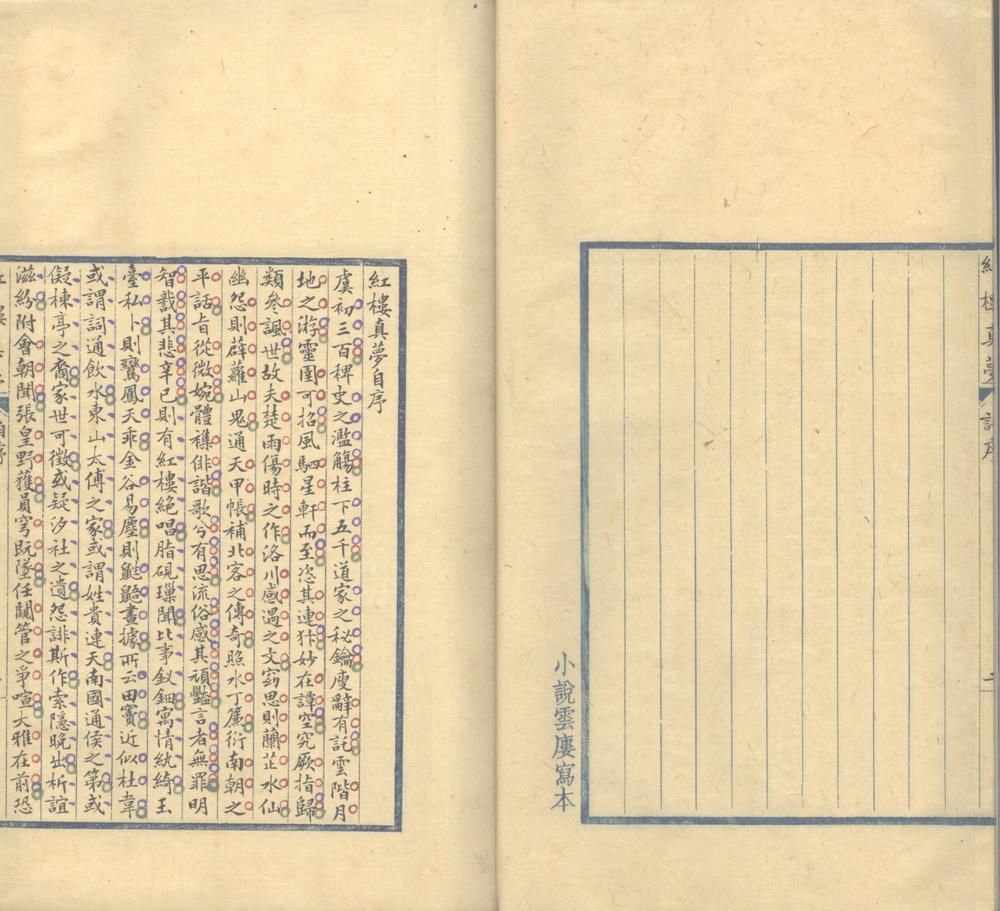 紅樓真夢
評序
二
小說雲廔寫本
紅樓真夢自序
虞初三百稗史之濫觴柱下五千道家之秘鑰廋辭有託雲階月
地之游靈圉可招風駟星軒而至恣其連犿妙在譚空究厥指歸
類參諷世故夫楚雨傷時之作洛川感遇之文窈思則蘭芷水仙
幽怨則薜蘿山鬼通天甲帳補北客之傳奇照水丁簾衍南朝之
平話旨從微婉體襍俳諧歌兮有思流俗感其頑豔言者無罪明
智戡其悲辛已則有紅樓絕唱脂硯璅聞比事釵鈿寓情紈綺玉
臺私卜則鸞鳳天乖金谷易塵則鼪鼯晝據所云田竇近似杜韋
或謂詞通飲水東山太傅之家或謂姓貴連天南國通侯之第或
儗棟亭之裔家世可徵或疑汐社之遺怨誹斯作索隱晚出析誼
滋紛附會朝聞張皇野獲員穹既墜任闚管之爭喧大雅在前恐
自序